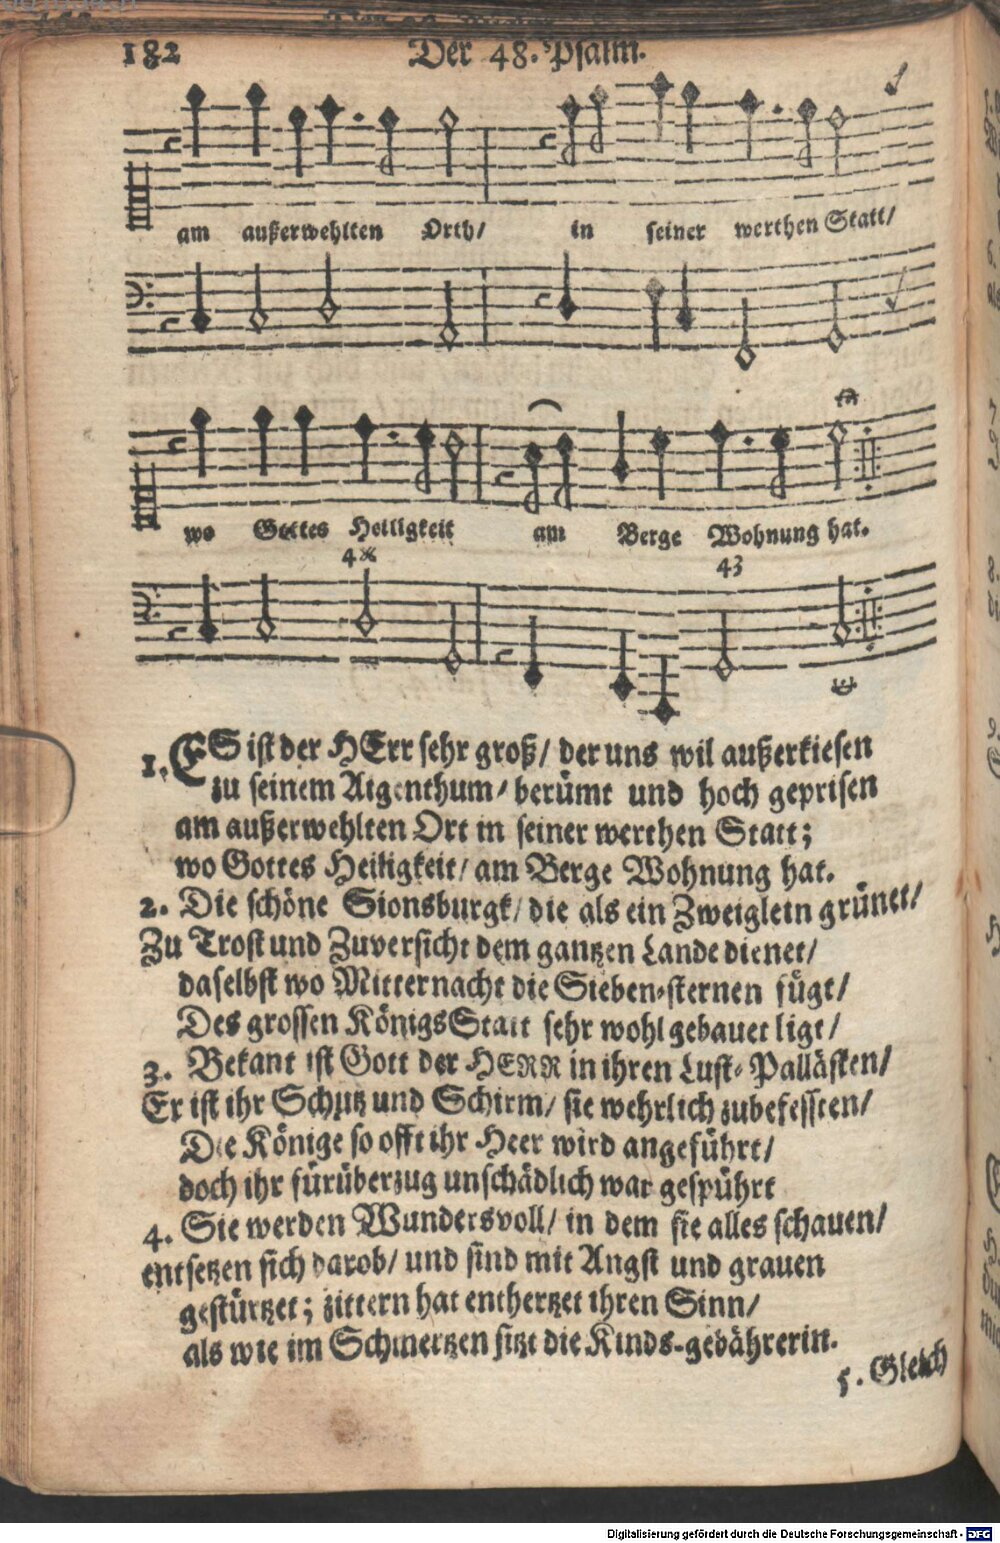 182 Der 48. Psalm.
am außerwehlten Orth/ in seiner werthen Statt/
wo Gottes Heiligkeit am Berge Wohnung hat.
4 43
1. ES ist der HErr sehr groß/ der uns wil außerkiesen
zu seinem Aigenthum/ berümt und hoch geprisen
am außerwehlten Ort in seiner werthen Statt;
wo Gottes Heiligkeit/ am Berge Wohnung hat.
2. Die schöne Sionsburgk/ die als ein Zweiglein grünet/
Zu Trost und Zuversicht dem gantzen Lande dienet/
daselbst wo Mitternacht die Sieben-sternen fügt/
Des grossen Königs Statt sehr wohl gebauet ligt/
3. Bekant ist Gott der HERR in ihren Lust-Pallästen/
Er ist ihr Schutz und Schirm/ sie wehrlich zubefessten/
Die Könige so offt ihr Heer wird angeführt/
doch ihr fürüberzug unschädlich war gespührt
4. Sie werden Wundersvoll/ in dem sie alles schauen/
entsetzen sich darob/ und sind mit Angst und grauen
gestürtzet; zittern hat enthertzet ihren Sinn/
als wie im Schmertzen sitzt die Kinds-gebährerin.
5. Gleich
Digitalisierung gefördert durch die Deutsche Forschungsgemeinschaft - DFG